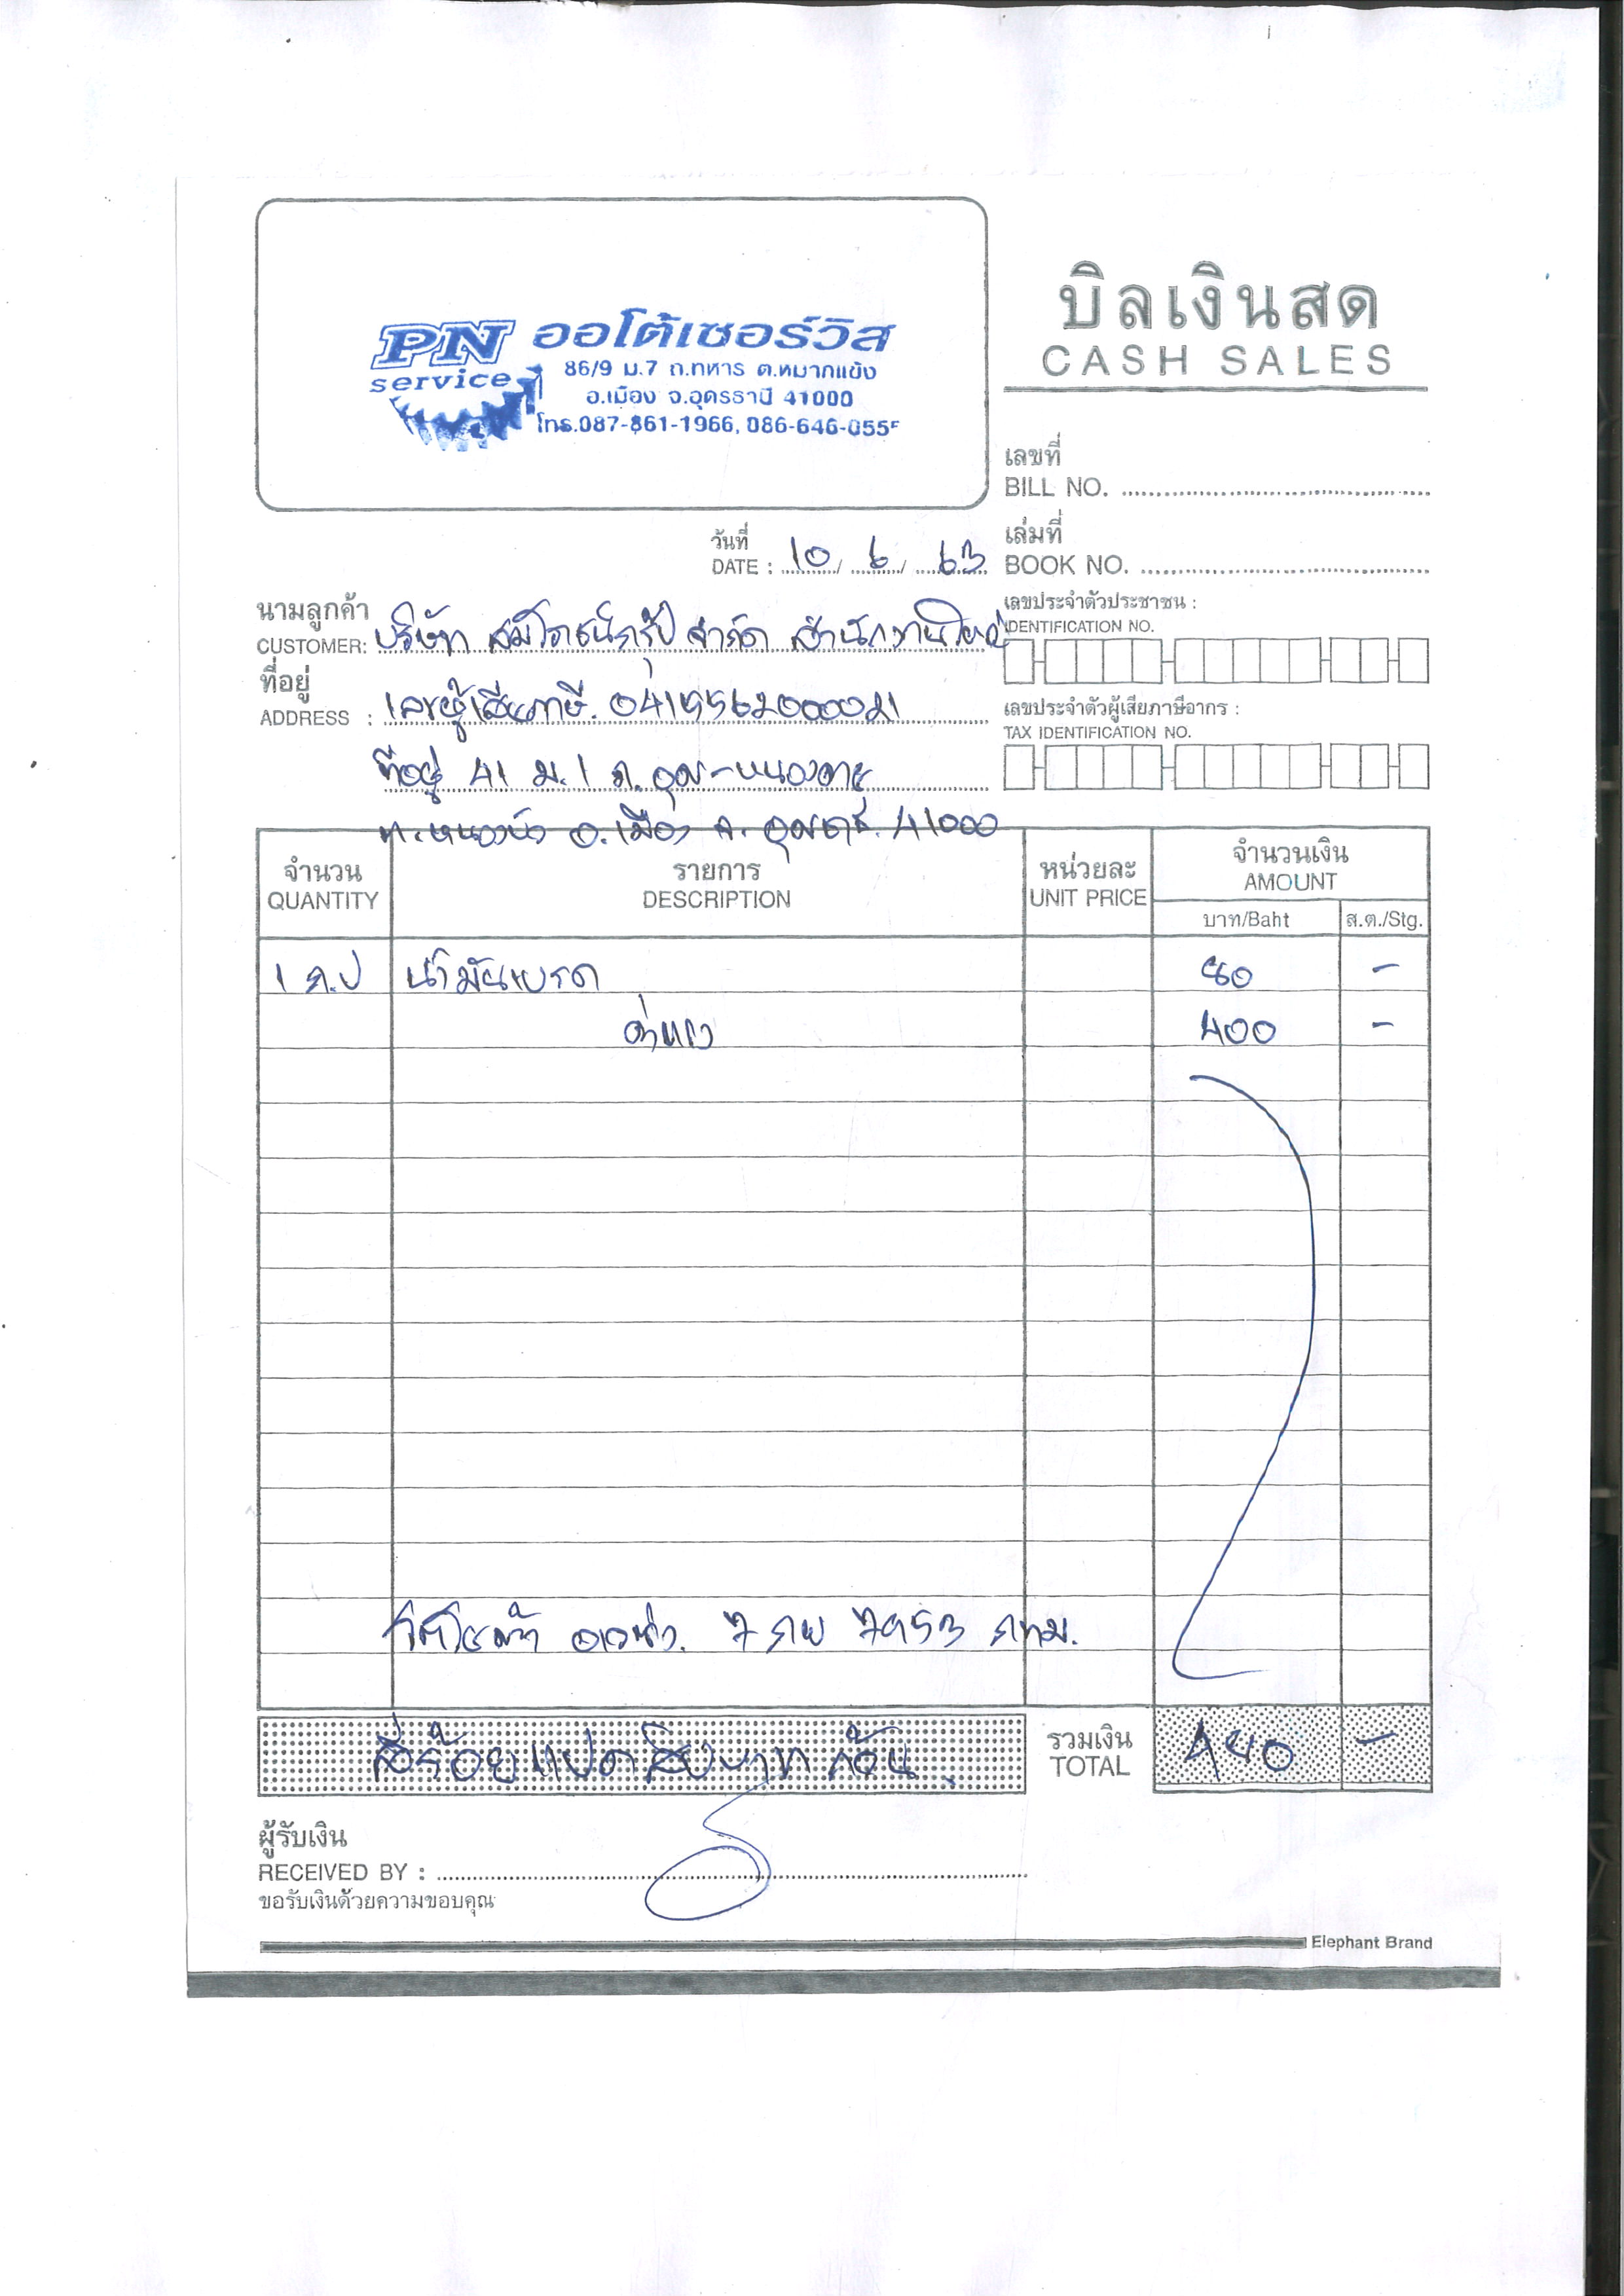 PN ออโต้เซอร์วิส
service
86/9 ม.7 ถ.ทหาร ต.หมากแข้ง
อ.เมือง จ.อุดรธานี 41000
โทร.087-861-1966, 086-646-0555
บิลเงินสด
CASH SALES
เลขที่
BILL NO.
วันที่
DATE : 10 / 6 / 63
เล่มที่
BOOK NO.
นามลูกค้า
CUSTOMER: บริษัท สมโภชน์กรุ๊ป จำกัด สำนักงานใหญ่
เลขประจำตัวประชาชน :
IDENTIFICATION NO.
ที่อยู่
ADDRESS : เลขผู้เสียภาษี. 0415562000021
เลขประจำตัวผู้เสียภาษีอากร :
TAX IDENTIFICATION NO.
ที่อยู่ 41 ม.1 ถ.
อ.เมือง จ. 41000
จำนวน รายการ หน่วยละ จำนวนเงิน
QUANTITY DESCRIPTION UNIT PRICE AMOUNT
บาท/Baht ส.ต./Stg.
1 ก.ป น้ำมันเบรค 80 -
ค่าแรง 400 -
7 กพ 7953 กทม.
สี่ร้อยแปดสิบบาทถ้วน
รวมเงิน
TOTAL 480 -
ผู้รับเงิน
RECEIVED BY :
ขอรับเงินด้วยความขอบคุณ
Elephant Brand